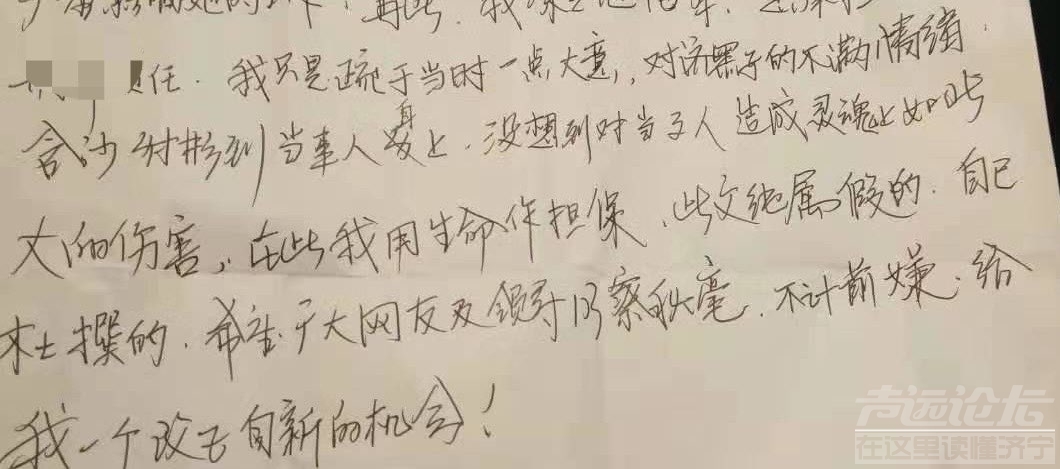 我
任.我只是疏于当时一点大意,对济黑子的不满情绪,
含沙射影到当事人身上.没想到对当事人造成灵魂上如此
大的伤害,在此我用生命作担保,此文纯属假的.自己
杜撰的.希望广大网友及领导明察秋毫.不计前嫌.给
我一个改过自新的机会!
声远论坛
在这里读懂济宁